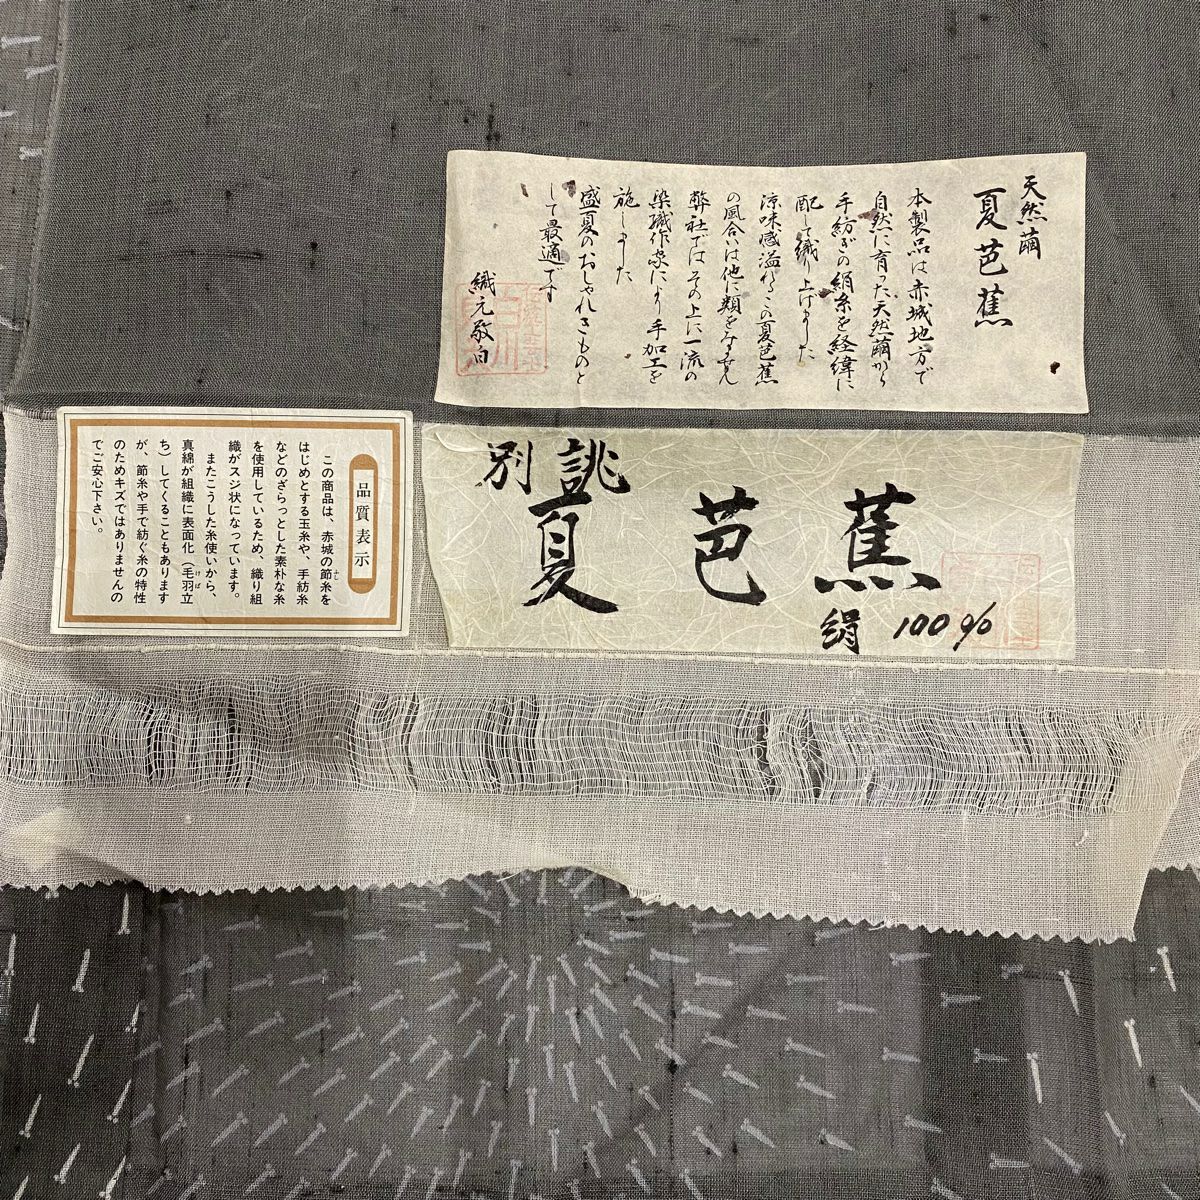 天然繭
夏芭蕉
本製品は赤城地方で
自然に育った天然繭から
手紡ぎの絹糸を経緯に
配して織り上げました
涼味感溢れるこの夏芭蕉
の風合いは他に類をみません
弊社ではその上に一流の
染織作家により手加工を
施しました
盛夏のおしゃれきものと
して最適です
織元敬白
別誂
夏芭蕉
絹 100%
品質表示
この商品は、赤城の節糸を
はじめとする玉糸や、手紡糸
などのざらっとした素朴な糸
を使用しているため、織り組
織がスジ状になっています。
またこうした糸使いから、
真綿が組織に表面化(毛羽立
ち)してくることもあります
が、節糸や手で紡ぐ糸の特性
のためキズではありませんの
でご安心下さい。